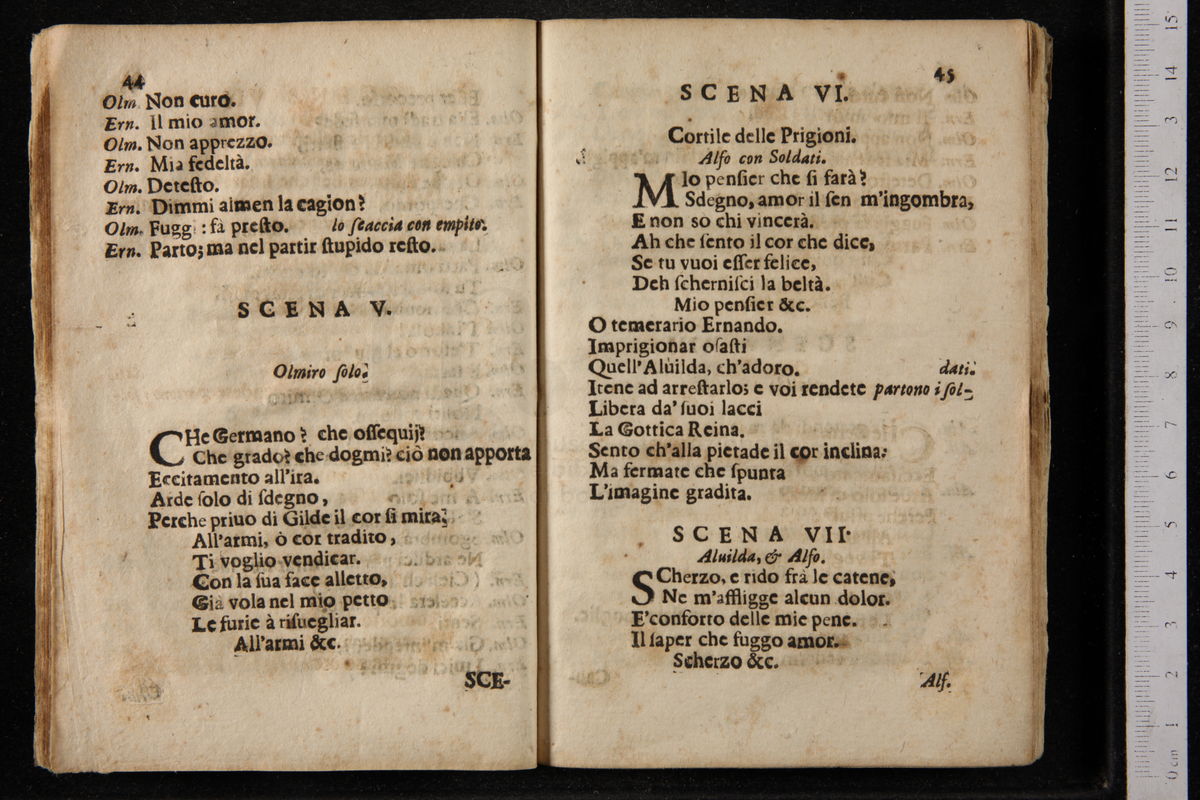 44
Olm. Non curo.
Ern. il mio amor.
Olm. Non apprezzo.
Ern. Mia fedeltà.
Olm. Deteſto.
Ern. Dimmi almen la cagion?
Olm. Fuggi: fà preſto. lo ſcaccia con empito.
Ern. Parto; ma nel partir ſtupido reſto.
SCENA V.
Olmiro ſolo.
CHe Germano? che oſſequij?
Che grado? che dogmi? ciò non apporta
Eccitamento all'ira.
Arde ſolo di ſdegno,
Perche priuo di Gilde il cor ſi mira.
All'armi, ò cor tradito,
Ti voglio vendicar.
Con la ſua face alletto,
Già vola nel mio petto
Le furie à riſuegliar.
All'armi &c.
SCE-
45
SCENA VI.
Cortile delle Prigioni.
Alfo con Soldati.
MIo penſier che ſi farà?
Sdegno, amor il ſen m'ingombra,
E non so chi vincerà.
Ah che ſento il cor che dice,
Se tu vuoi eſſer felice,
Deh ſcherniſci la beltà.
Mio penſier &c.
O temerario Ernando.
Imprigionar oſaſti
Quell'Aluilda, ch'adoro. dati.
Itene ad arreſtarlo; e voi rendete partono i ſol-
Libera da' ſuoi lacci
La Gottica Reina.
Sento ch'alla pietade il cor inclina:
Ma fermate che ſpunta
L'imagine gradita.
SCENA VII.
Aluilda, & Alfo.
SCherzo, e rido frà le catene,
Ne m'affligge alcun dolor.
E' conforto delle mie pene.
Il ſaper che fuggo amor.
Scherzo &c.
Alf.